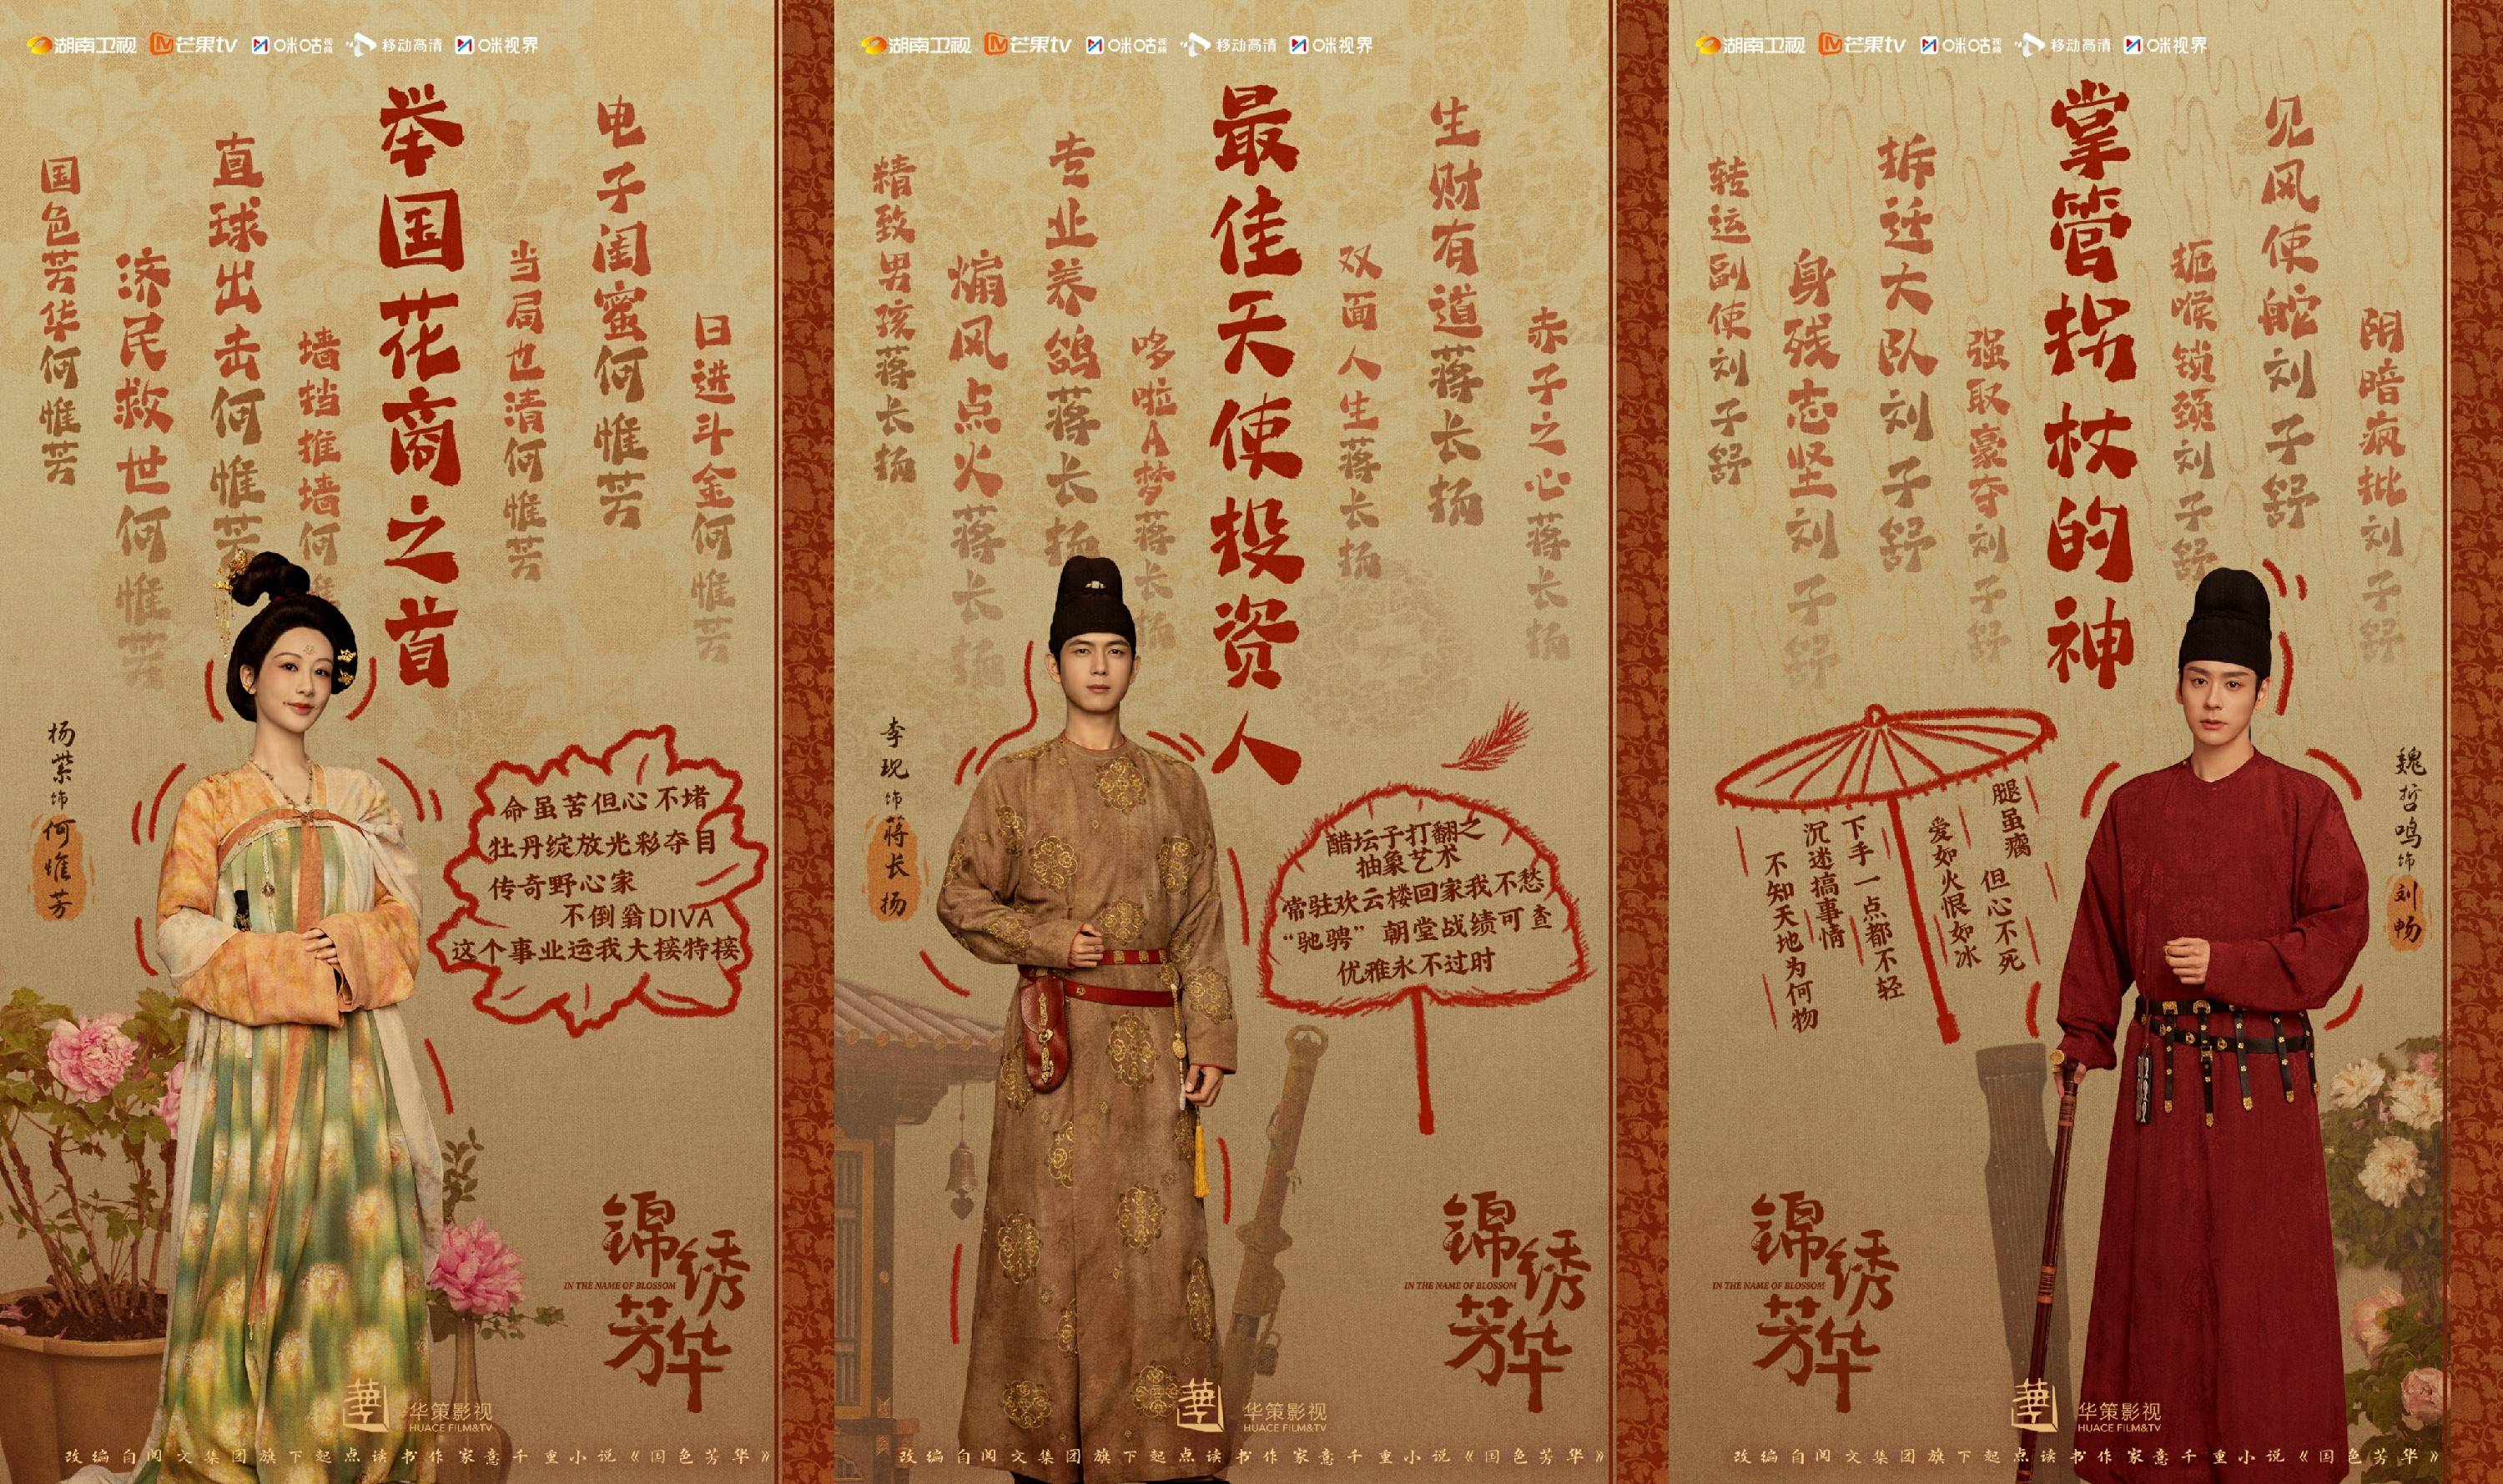 湖南卫视 芒果tv 咪咕视频 移动高清 咪视界
国色芳华何惟芳
济民救世何惟芳
直球出击何惟芳
墙挡推墙何惟
举国花商之首
当局也清何惟芳
电子闺蜜何惟芳
日进斗金何惟芳
杨紫饰何惟芳
命虽苦但心不堵
牡丹绽放光彩夺目
传奇野心家
不倒翁DIVA
这个事业运我大接特接
锦绣芳华
IN THE NAME OF BLOSSOM
華
华策影视
HUACE FILM&TV
改编自阅文集团旗下起点读书作家意千重小说《国色芳华》
湖南卫视 芒果tv 咪咕视频 移动高清 咪视界
精致男孩蒋长扬
煽风点火蒋长扬
专业养鸽蒋长扬
哆啦A梦蒋长扬
最佳天使投资人
双面人生蒋长扬
生财有道蒋长扬
赤子之心蒋长扬
李现饰蒋长扬
醋坛子打翻之
抽象艺术
常驻欢云楼回家我不愁
“驰骋”朝堂战绩可查
优雅永不过时
锦绣芳华
IN THE NAME OF BLOSSOM
華
华策影视
HUACE FILM&TV
改编自阅文集团旗下起点读书作家意千重小说《国色芳华》
湖南卫视 芒果tv 咪咕视频 移动高清 咪视界
转运副使刘子舒
身残志坚刘子舒
拆迁大队刘子舒
强取豪夺刘子舒
掌管拐杖的神
扼喉锁颈刘子舒
见风使舵刘子舒
阴暗疯批刘子舒
魏哲鸣饰刘畅
腿虽瘸 但心不死
爱如火恨如冰
下手一点都不轻
沉迷搞事情
不知天地为何物
锦绣芳华
IN THE NAME OF BLOSSOM
華
华策影视
HUACE FILM&TV
改编自阅文集团旗下起点读书作家意千重小说《国色芳华》